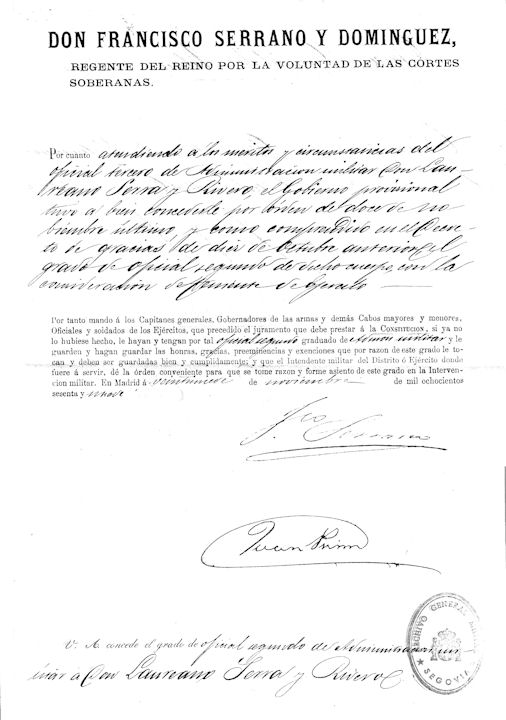 DON FRANCISCO SERRANO Y DOMINGUEZ,
REGENTE DEL REINO POR LA VOLUNTAD DE LAS CÓRTES
SOBERANAS.
Por cuanto atendiendo a los meritos y circunstancias del
oficial tercero de Administracion militar Don Lau-
reano Serra y Rivero, el Gobierno provisional
tuvo a bien concederle por órden de doce de no
biembre último, y como comprendido en el Decre-
to de gracias de diez de Octubre anterior, el
grado de oficial segundo de dicho cuerpo, con la
consideracion de Teniente de Egercito
Por tanto mando á los Capitanes generales, Gobernadores de las armas y demás Cabos mayores y menores,
Oficiales y soldados de los Ejércitos, que precedido el juramento que debe prestar á la CONSTITUCION, si ya no
lo hubiese hecho, le hayan y tengan por tal oficial segundo graduado de Admon militar y le
guarden y hagan guardar las honras, gracias, preeminencias y exenciones que por razon de este grado le to-
can y deben ser guardadas bien y cumplidamente; y que el Intendente militar del Distrito ó Ejército donde
fuere á servir, dé la órden conveniente para que se tome razon y forme asiento de este grado en la Interven-
cion militar. En Madrid á veintinueve de noviembre de mil ochocientos
sesenta y nueve
Fco Serrano
Juan Prim
V. A. concede el grado de oficial segundo de Administracion mi-
litar a Don Laureano Serra y Rivero
ARCHIVO GENERAL MILITAR
SEGOVIA